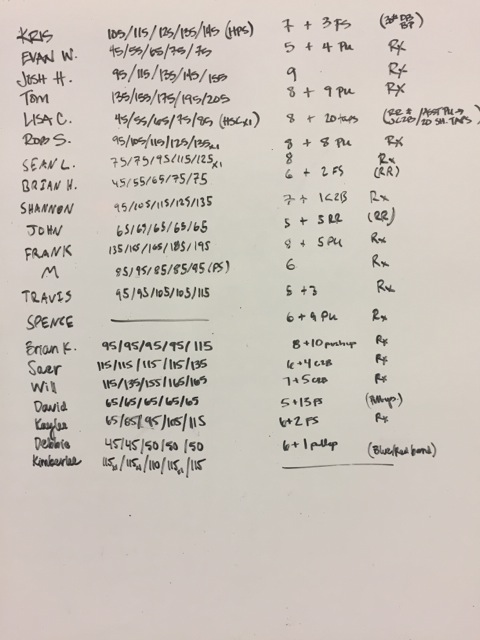 KRIS 105/115/125/135/145 (HPS) 7 + 3 FS (30# DB BP)
EVAN W. 45/55/65/75/75 5 + 4 PU Rx
JOSH H. 95/115/135/145/155 9 Rx
TOM 135/155/175/195/205 8 + 9 PU Rx
LISA C. 45/55/65/75/85 (HSCx1) 8 + 20 taps (RR * /ASST PU → C2B /20 SH. TAPS)
ROB S. 95/105/115/125/135x1 8 + 8 PU Rx
SEAN L. 75/75/95/115/125x1 8 Rx
BRIAN H. 45/55/65/75/75 6 + 2 FS (RR)
SHANNON 95/105/115/125/135 7 + 1 C2B Rx
JOHN 65/65/65/65/65 5 + 5 RR (RR)
FRANK 135/155/165/185/195 8 + 5 PU Rx
M 85/95/85/85/95 (PS) 6 Rx
TRAVIS 95/95/105/105/115 5 + 3 Rx
SPENCE 6 + 9 PU Rx
Brian K. 95/95/95/95/115 8 + 10 pushup Rx
Saer 115/115/115/115/135 6 + 4 C2B Rx
Will 115/135/155/165/165 7 + 5 C2B Rx
David 65/65/65/65/65 5 + 15 FS (Pullups)
Kaylee 65/85/95/105/115 6 + 2 FS Rx
Debbie 45/45/50/50/50 6 + 1 pullup (Blue/Red band)
Kimberlee 115/115/110/115/115